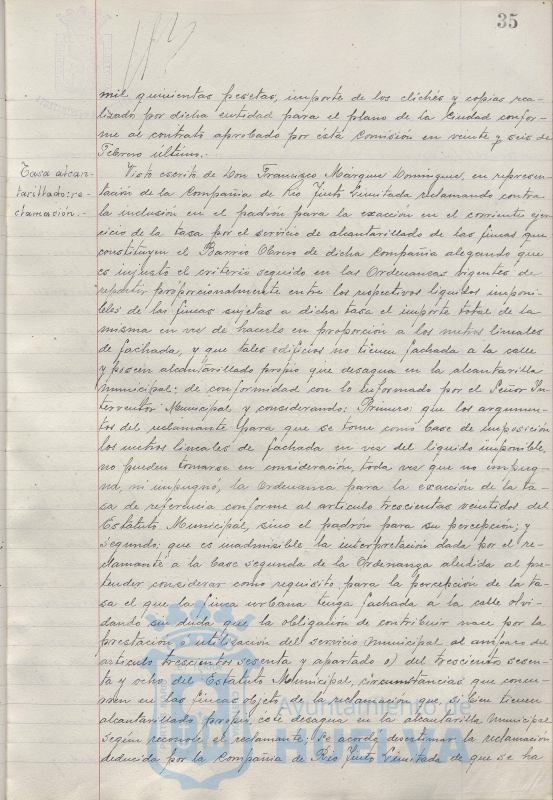 35
mil quinientas pesetas, importe de los clichés y copias rea-
lizado por dicha entidad para el plano de la Ciudad confor-
me al contrato aprobado por esta Comisión en veinte y seis de
Febrero último.
Tasa alcan-
tarillado: re-
clamación.-
Visto escrito de Don Francisco Marquez Dominguez, en represen-
tación de la Compañia de Rio Tinto Limitada reclamando contra
la inclusión en el padrón para la exacción en el corriente ejer-
cicio de la tasa por el servicio de alcantarillado de las fincas que
constituyen el Barrio Obrero de dicha Compañia alegando que
es injusto el criterio seguido en las Ordenanzas vigentes de
repartir proporcionalmente entre los respectivos liquidos imponi-
bles de las fincas sujetas a dicha tasa el importe total de la
misma en vez de hacerlo en proporción a los metros lineales
de fachada, y que tales edificios no tienen fachada a la calle
y poseen alcantarillado propio que desagua en la alcantarilla
municipal: de conformidad con lo informado por el Señor In-
terventor Municipal y considerando: Primero: que los argumen-
tos del reclamante para que se tome como base de imposición
los metros lineales de fachada en vez del liquido imponible,
no pueden tomarse en consideración, toda vez que no impug-
na, ni impugnó, la Ordenanza para la exacción de la ta-
sa de referencia conforme al articulo trescientos veintidos del
Estatuto Municipal, sino el padrón para su percepción; y
segundo: que es inadmisible la interpretación dada por el re-
clamante a la base segunda de la Ordenanza aludida al pre-
tender considerar como requisito para la percepción de la ta-
sa el que la finca urbana tenga fachada a la calle olvi-
dando sin duda que la obligación de contribuir nace por la
prestación o utilización del servicio municipal al amparo del
articulo trescientos sesenta y apartado o) del trescientos sesen-
ta y ocho del Estatuto Municipal, circunstancias que concu-
rren en las fincas objeto de la reclamación que si bien tienen
alcantarillado propio, este desagua en la alcantarilla municipal
según reconoce el reclamante: Se acordó desestimar la reclamación
deducida por la Compañia de Rio Tinto Limitada de que se ha
Ayuntamiento de
HUELVA